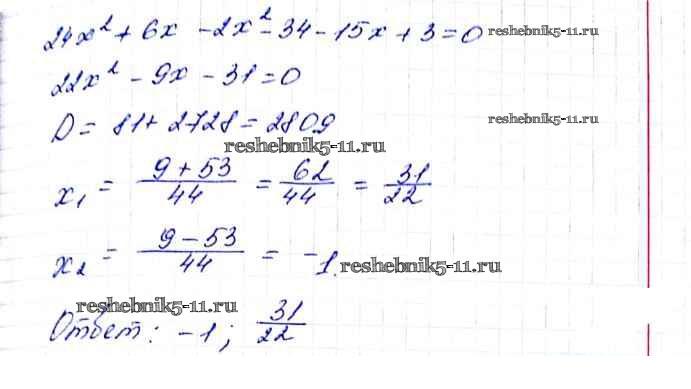 24x² + 6x - 2x² - 34 - 15x + 3 = 0 reshebnik5-11.ru
22x² - 9x - 31 = 0
D = 81 + 2728 = 2809 reshebnik5-11.ru
reshebnik5-11.ru
x₁ = (9 + 53)/44 = 62/44 = 31/22
x₂ = (9 - 53)/44 = -1. reshebnik5-11.ru
reshebnik5-11.ru
Ответ: -1; 31/22